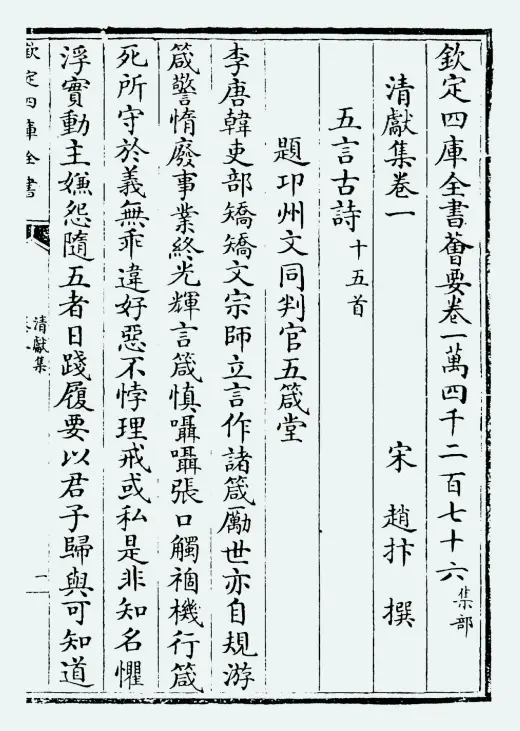 欽定四庫全書薈要卷一萬四千二百七十六 集部
清獻集卷一 宋 趙抃 撰
五言古詩 十五首
題卭州文同判官五箴堂
李唐韓吏部矯矯文宗師立言作諸箴勵世亦自規游
箴警惰廢事業終光輝言箴慎囁囁張口觸禍機行箴
死所守於義無乖違好惡不悖理戒或私是非知名懼
浮實動主嫌怨隨五者日踐履要以君子歸與可知道
欽定四庫全書
清獻集
一